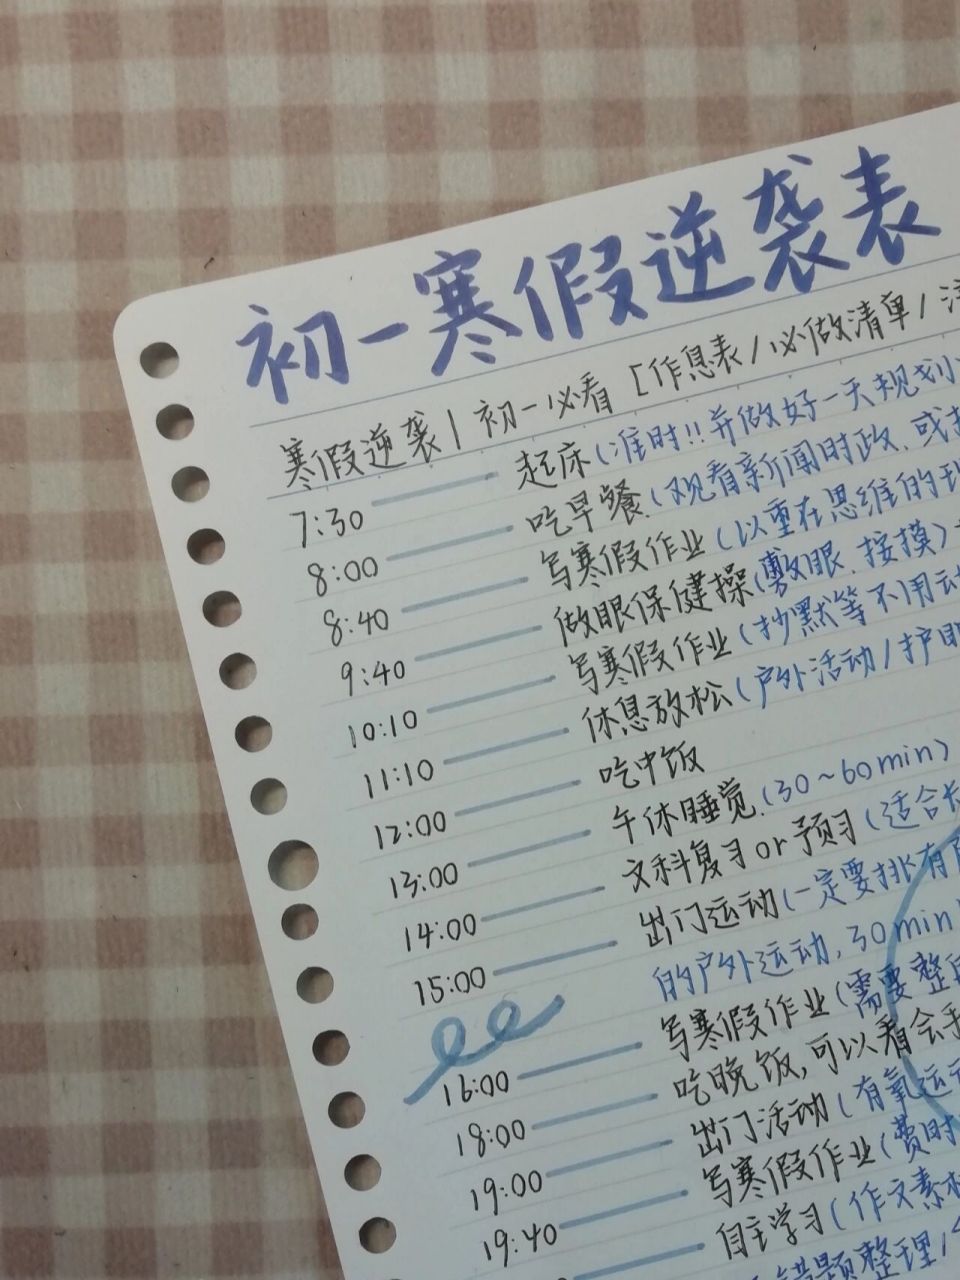 初一寒假逆袭表
寒假逆袭 | 初一必看 [作息表 / 必做清单 /
7:30 起床 (准时!! 并做好一天规划
8:00 吃早餐 (观看新闻时政、或
8:40 写寒假作业 (以重在思维的
9:40 做眼保健操 (敷眼、按摸)
10:10 写寒假作业 (抄默等不用
11:10 休息放松 (户外活动 / 护眼
12:00 吃中饭
13:00 午休睡觉 (30~60min)
14:00 文科复习or预习 (适合
15:00 出门运动 (一定要排有
的户外运动, 30min
16:00 写寒假作业 (需要整
18:00 吃晚饭, 可以看会手
19:00 出门活动 (有氧运
19:40 写寒假作业 (费时
自主学习 (作文素材
错题整理 /